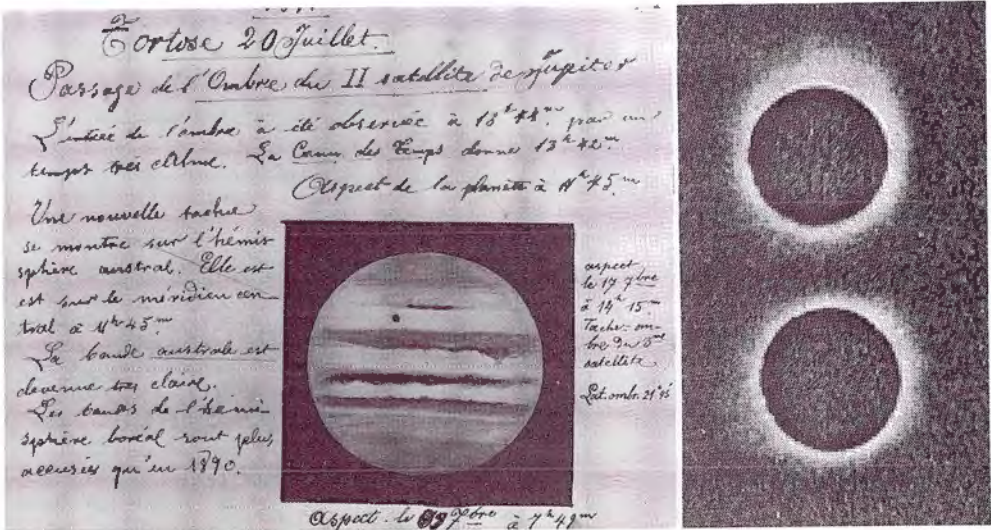 Tortose 20 Juillet.
Passage de l'Ombre du II satellite de Jupiter
L'entrée de l'ombre à été observée à par un
temps très calme. La Conn. des Temps donne 13h 42m.
Aspect de la planète à 11h 45m
Une nouvelle tache
se montre sur l'hémis
sphère austral. Elle est
est sur le méridien cen-
tral à 11h 45m
La bande australe est
devenue très claire.
Les bandes de l'hémi-
sphère boréal sont plus
accusées qu'en 1890.
aspect
le 17 7bre
à 14h 15m
Tache-om-
bre du 3me
satellite
Lat. ombr. 21°45
Aspect le 7bre à 7h 49m